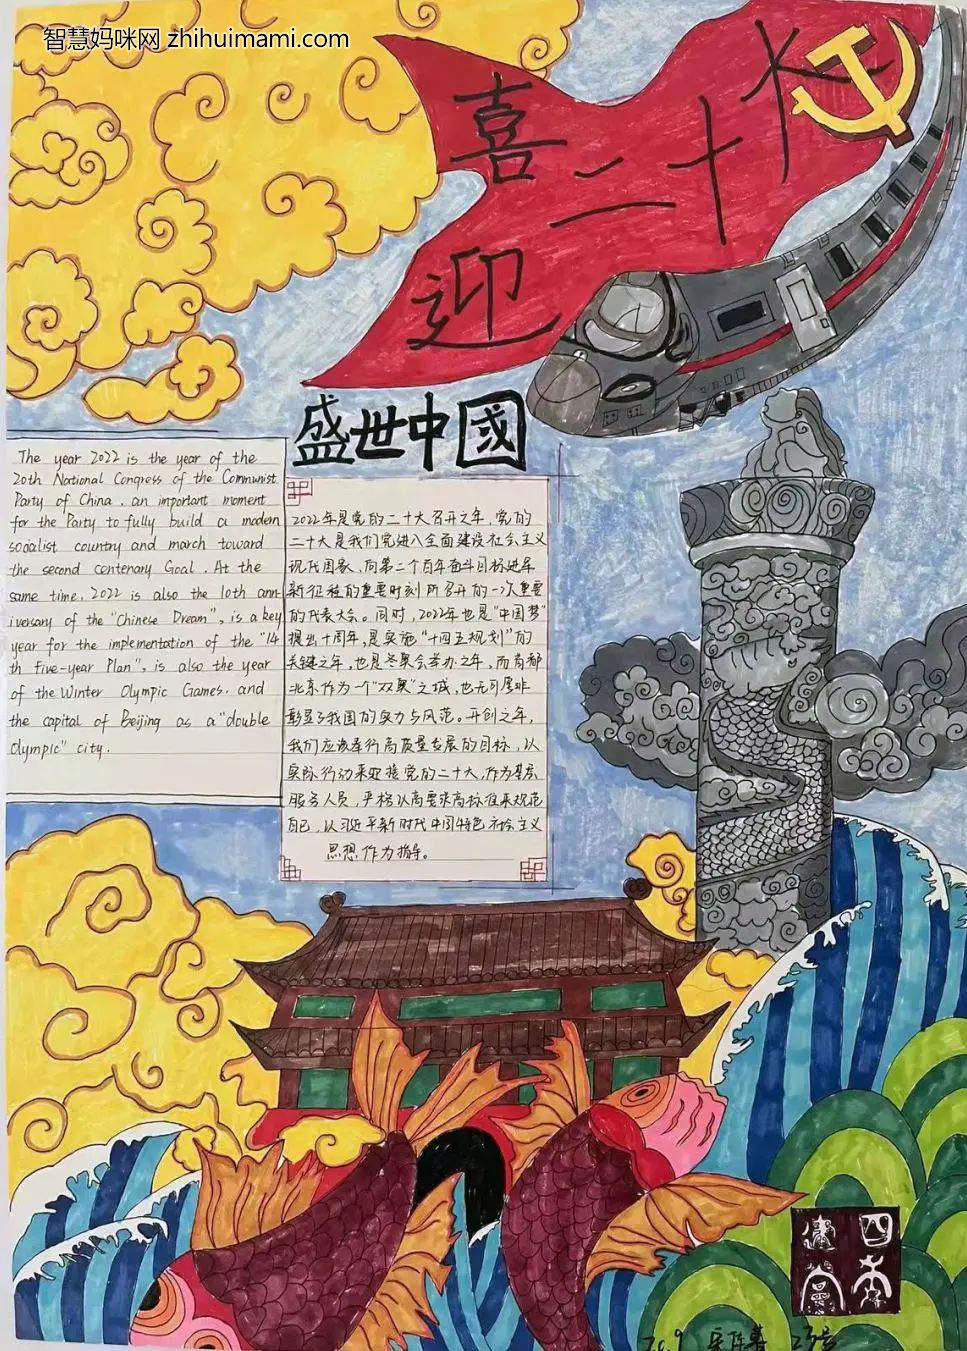 智慧妈咪网 zhihuimami.com
喜
迎
二十大
盛世中國
The year 2022 is the year of the
20th National Congress of the Communist
Party of China, an important moment
for the Party to fully build a modern
socialist country and march toward
the second centenary Goal. At the
same time, 2022 is also the 10th ann-
iversary of the "Chinese Dream", is a key
year for the implementation of the "14
th Five-year Plan", is also the year
of the Winter Olympic Games, and
the capital of Beijing as a "double
Olympic" city.
2022年是党的二十大召开之年，党的
二十大是我们党进入全面建设社会主义
现代国家、向第二个百年奋斗目标进军
新征程的重要时刻所召开的一次重要
的代表大会。同时，2022年也是"中国梦"
提出十周年，是实施"十四五规划"的
关键之年，也是冬奥会举办之年，而首都
北京作为一个"双奥"之城，也无可厚非
彰显了我国的实力与风范。开创之年，
我们应该奉行高质量发展的目标，以
实际行动来迎接党的二十大，作为基层
服务人员，严格以高要求高标准来规范
自己，以习近平新时代中国特色社会主义
思想作为指导。